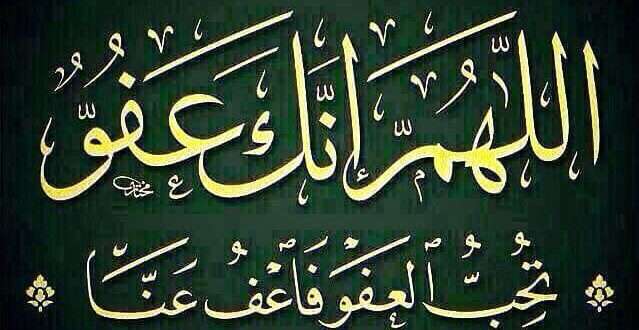 اللَّهُمَّ إِنَّكَ عَفُوٌّ
تُحِبُّ ٱلْعَفْوَ فَاعْفُ عَنَّا